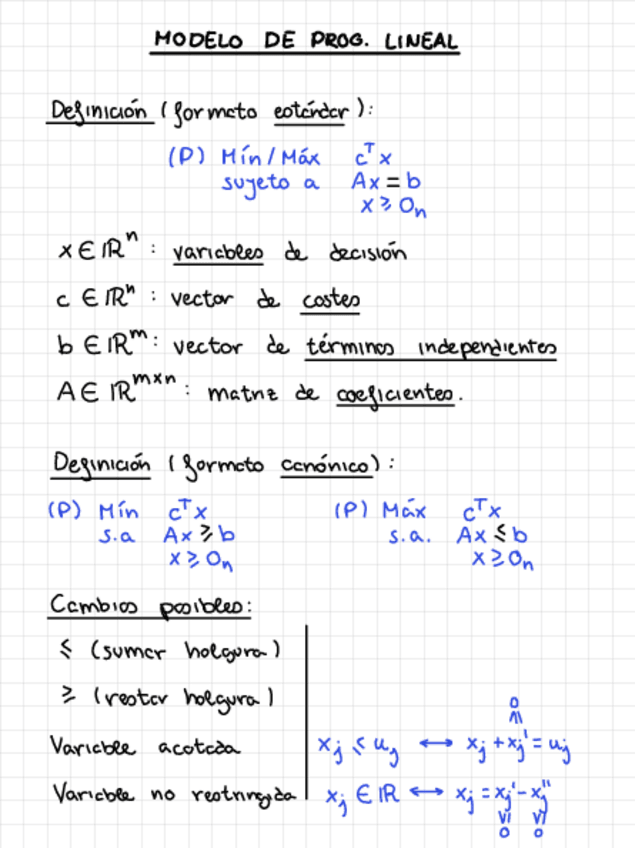 MODELO DE PROG. LINEAL
Definición (formato estándar):
(P) Mín/Máx cᵀx
sujeto a Ax = b
x ≥ 0ₙ
x ∈ ℝⁿ : variables de decisión
c ∈ ℝⁿ : vector de costes
b ∈ ℝᵐ : vector de términos independientes
A ∈ ℝᵐˣⁿ : matriz de coeficientes.
Definición (formato canónico):
(P) Mín cᵀx (P) Máx cᵀx
s.a Ax ≥ b s.a. Ax ≤ b
x ≥ 0ₙ x ≥ 0ₙ
Cambios posibles:
≤ (sumar holgura)
≥ (restar holgura)
Variable acotada xⱼ ≤ uⱼ ↔ xⱼ + xⱼ' = uⱼ
≥ 0
Variable no restringida xⱼ ∈ ℝ ↔ xⱼ = xⱼ' - xⱼ''
≥ 0 ≥ 0